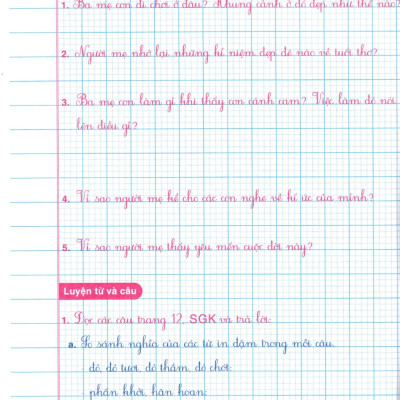 1. Ba mẹ con đi chơi ở đâu? Khung cảnh ở đó đẹp như thế nào?
2. Người mẹ nhớ lại những kỉ niệm đẹp đẽ nào về tuổi thơ?
3. Ba mẹ con làm gì khi thấy con cánh cam? Việc làm đó nói
lên điều gì?
4. Vì sao người mẹ kể cho các con nghe về kí ức của mình?
5. Vì sao người mẹ thấy yêu mến cuộc đời này?
Luyện từ và câu
1. Đọc các câu trang 12, SGK và trả lời:
a. So sánh nghĩa của các từ in đậm trong mỗi câu.
đỏ, đỏ tươi, đỏ thắm, đỏ chói:
phấn khởi, hân hoan: